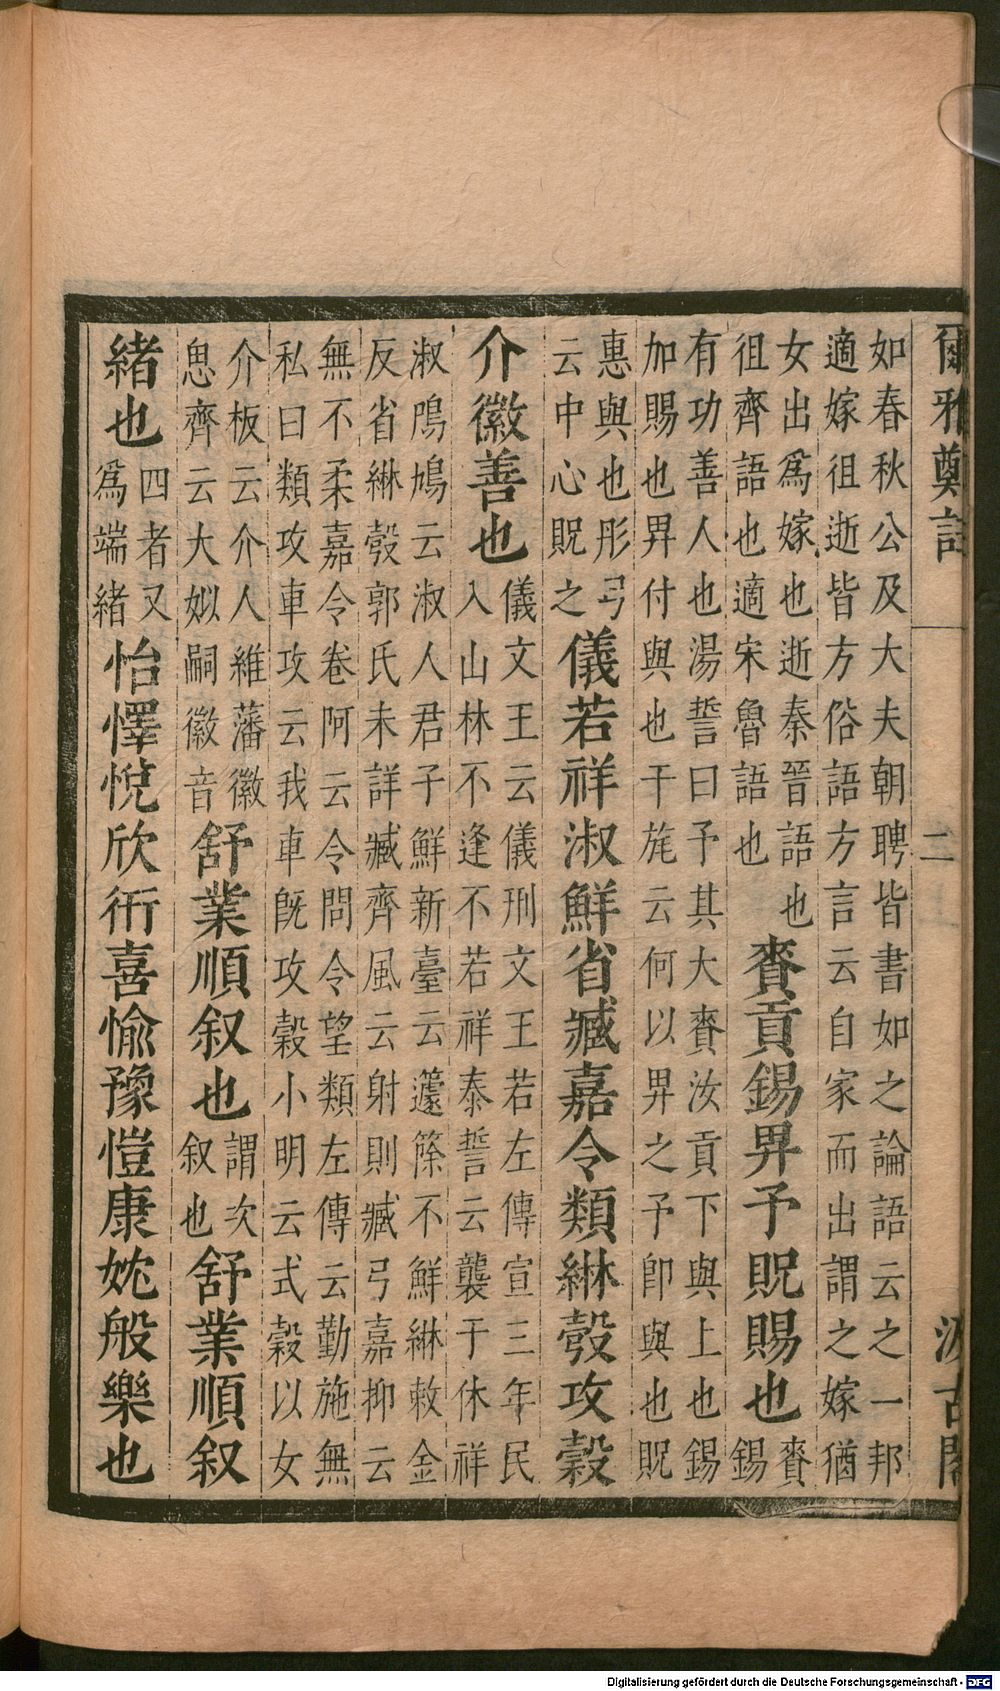 爾雅鄭註 二 汲古閣
如春秋公及大夫朝聘皆書如之論語云之一邦
適嫁徂逝皆方俗語方言云自家而出謂之嫁猶
女出爲嫁也逝秦晉語也
徂齊語也適宋魯語也
賚貢錫畀予貺賜也
賚
錫
有功善人也湯誓曰予其大賚汝貢下與上也錫
加賜也畀付與也干旄云何以畀之予卽與也貺
惠與也彤弓
云中心貺之
儀若祥淑鮮省臧嘉令類綝彀攻穀
介徽善也
儀文王云儀刑文王若左傳宣三年民
入山林不逢不若祥泰誓云襲于休祥
淑鳲鳩云淑人君子鮮新臺云籧篨不鮮綝敕金
反省綝彀郭氏未詳臧齊風云射則臧弓嘉抑云
無不柔嘉令卷阿云令問令望類左傳云勤施無
私曰類攻車攻云我車旣攻穀小明云式穀以女
介板云介人維藩徽
思齊云大姒嗣徽音
舒業順叙也
謂次
叙也
舒業順叙
緖也
四者又
爲端緖
怡懌悅欣衎喜愉豫愷康妉般樂也
Digitalisierung gefördert durch die Deutsche Forschungsgemeinschaft - DFG